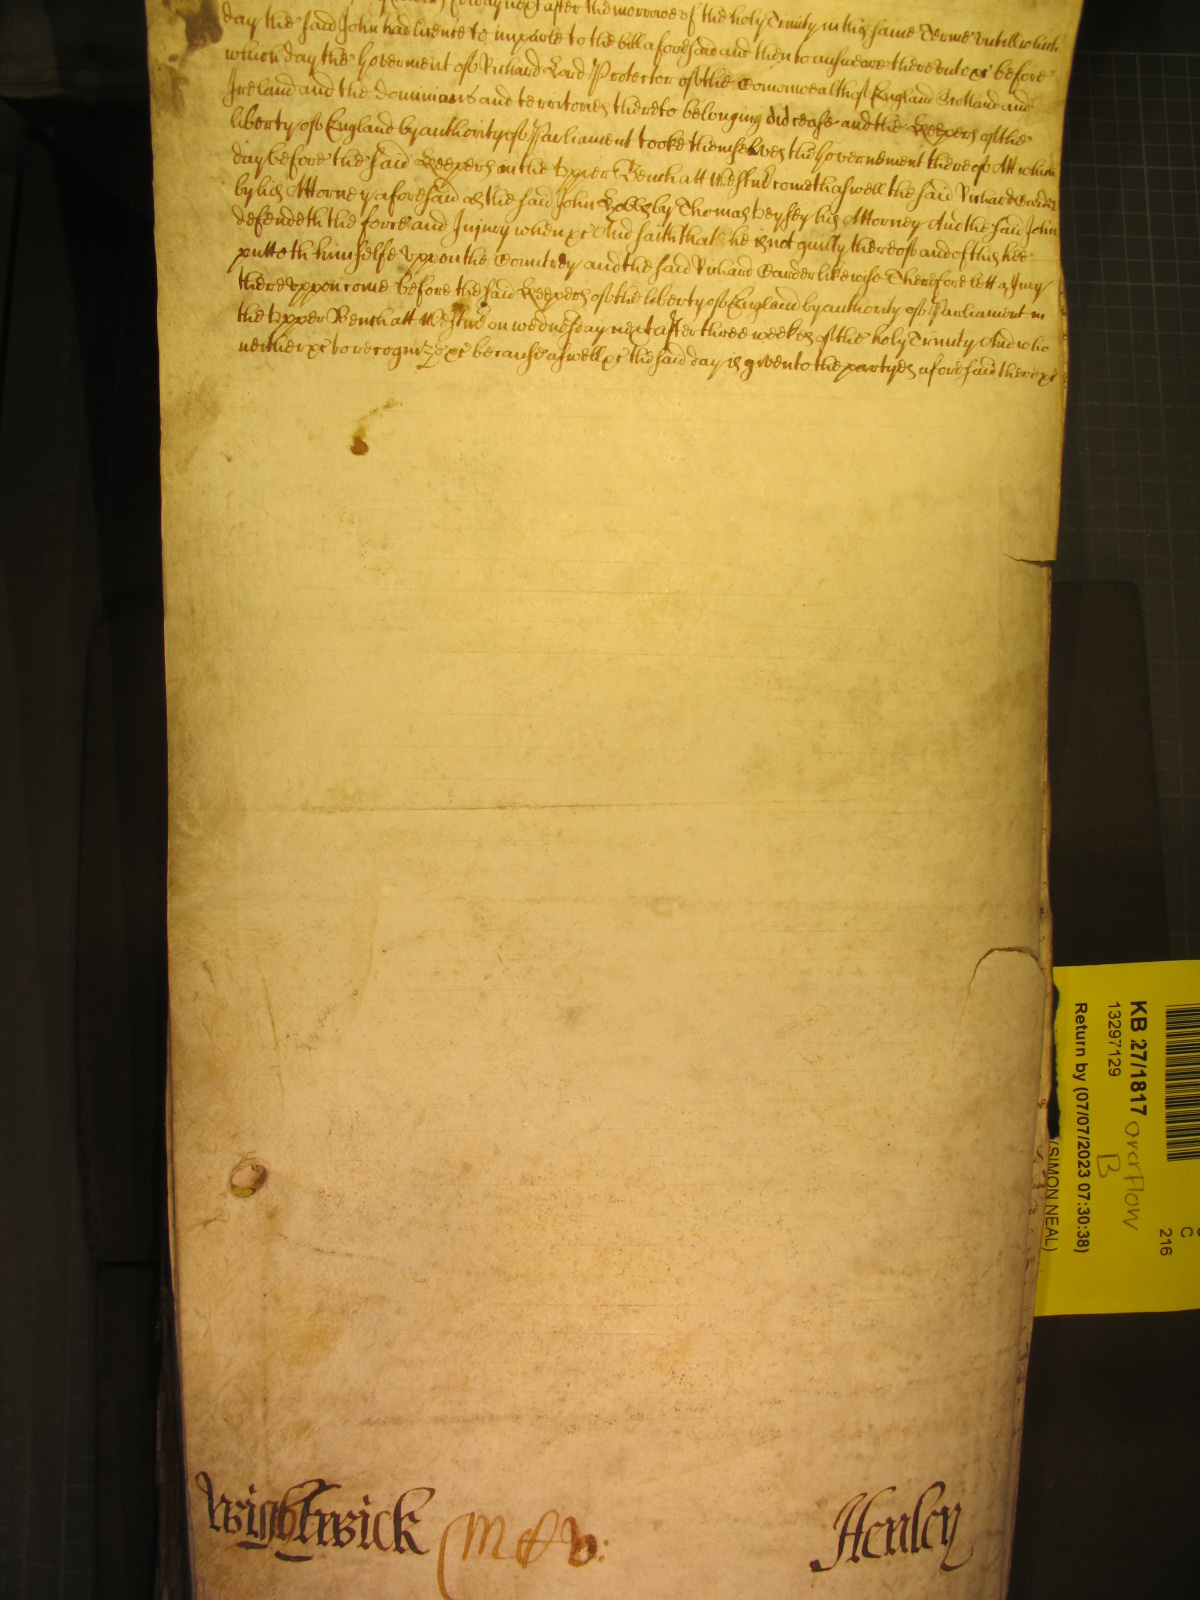 day next after the morrowe of the holy Trinity in this same Terme untill which
day the said John had licence to imparle to the bill aforesaid and then to answeare thereunto &c before
which day the Goverment of Richard Lord Protector of the Comonwealth of England Scotland and
Ireland and the dominions and territories thereto belonging did cease and the Keepers of the
liberty of England by authority of Parliament tooke themselves the Governement thereof Att which
day before the said Keepers in the Upper Bench att Westm̄ cometh aswell the said Richard Carder
by his Attorney aforesaid as the said John by Thomas his Attorney And the said John
defendeth the force and Injury when &c And saith that he is not guilty thereof and of this hee
putteth himselfe uppon the Countrey and the said Richard Carder likewise Therefore lett a Jury
thereuppon come before the said Keepers of the liberty of England by authority of Parliament in
the Upper Bench att Westm̄ on wednesday next after three weekes of the holy Trinity And who
neither &c to recognize &c because aswell &c the said day is given to the partyes aforesaid there &c
Wightwick
Henley
KB 27/1817 overflow
B
13297129
Return by (07/07/2023 07:30:38)
(SIMON NEAL)
C
216